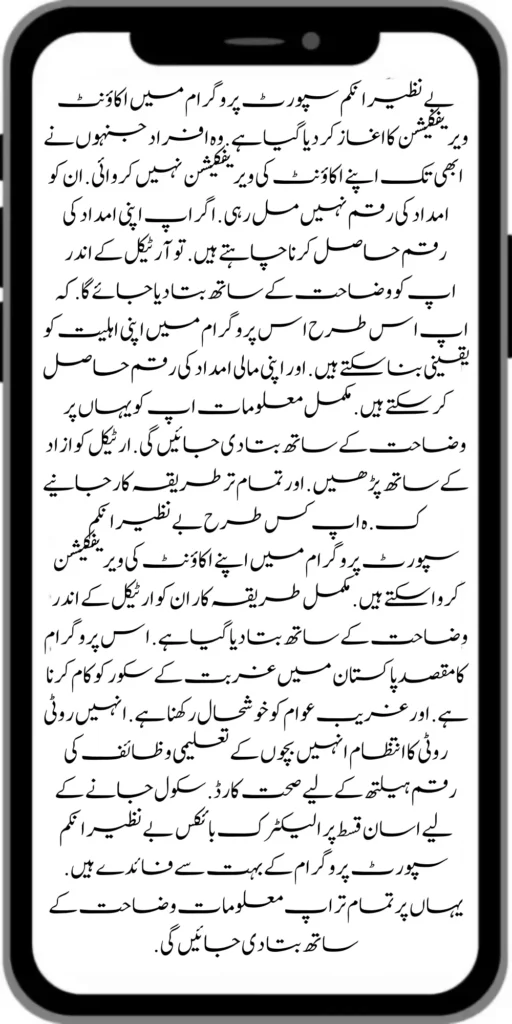 بے نظیر انکم سپورٹ پروگرام میں اکاؤنٹ
ویریفکیشن کا اغاز کر دیا گیا ہے. وہ افراد جنہوں نے
ابھی تک اپنے اکاؤنٹ کی ویریفکیشن نہیں کروائی. ان کو
امداد کی رقم نہیں مل رہی. اگر اپ اپنی امداد کی
رقم حاصل کرنا چاہتے ہیں. تو آرٹیکل کے اندر
اپ کو وضاحت کے ساتھ بتا دیا جائے گا. کہ
اپ اس طرح اس پروگرام میں اپنی اہلیت کو
یقینی بنا سکتے ہیں. اور اپنی مالی امداد کی رقم حاصل
کر سکتے ہیں. مکمل معلومات اپ کو یہاں پر
وضاحت کے ساتھ بتا دی جائیں گی. ارٹیکل کو ازاد
کے ساتھ پڑھیں. اور تمام تر طریقہ کار جانیے
ک. ہ اپ کس طرح بے نظیر انکم
سپورٹ پروگرام میں اپنے اکاؤنٹ کی ویریفکیشن
کروا سکتے ہیں. مکمل طریقہ کار ان کو ارٹیکل کے اندر
وضاحت کے ساتھ بتا دیا گیا ہے. اس پروگرام
کا مقصد پاکستان میں غربت کے سکور کو کام کرنا
ہے. اور غریب عوام کو خوشحال رکھنا ہے. انہیں روٹی
روٹی کا انتظام انہیں بچوں کے تعلیمی وظائف کی
رقم ہیلتھ کے لیے صحت کارڈ. سکول جانے کے
لیے اسان قسط پر الیکٹرک بائکس بے نظیر انکم
سپورٹ پروگرام کے بہت سے فائدے ہیں.
یہاں پر تمام تر اپ معلومات وضاحت کے
ساتھ بتا دی جائیں گی.